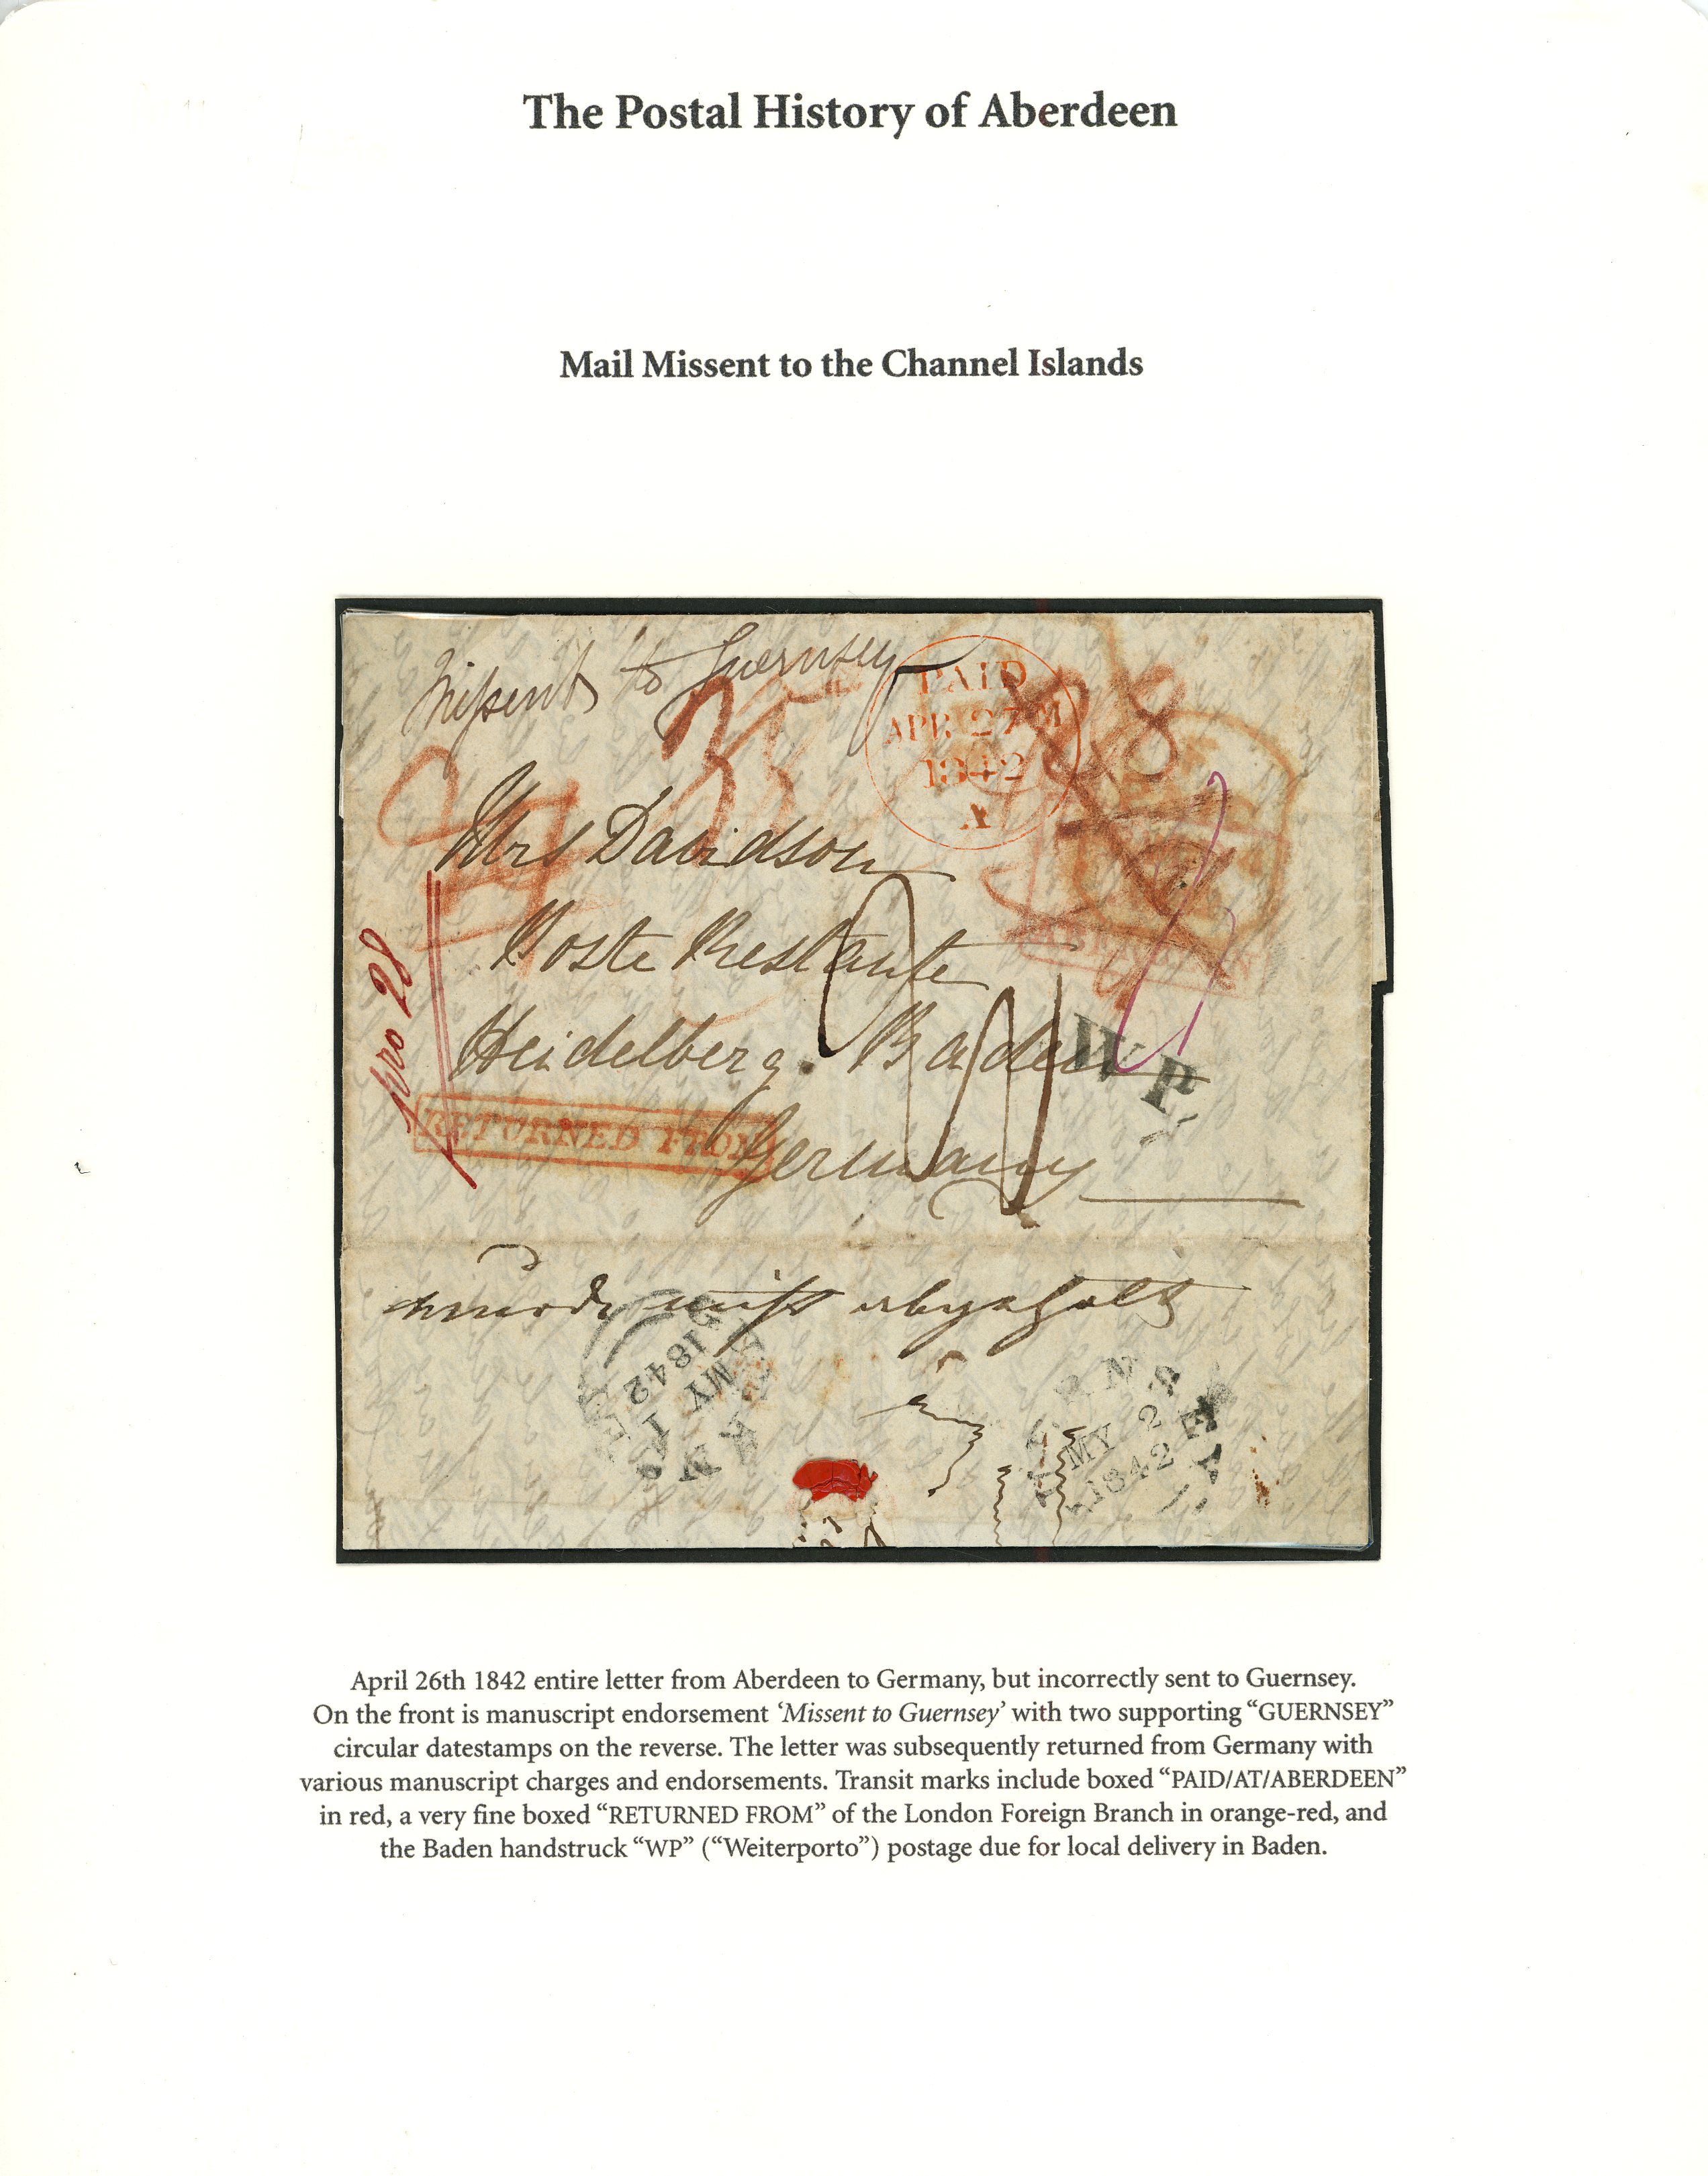 The Postal History of Aberdeen
Mail Missent to the Channel Islands
Missent to Guernsey
PAID
APR 27
1842
Mrs Davidson
Poste Restante
Heidelberg. Baden
Germany
28
W P.
RETURNED FROM
ABERDEEN
wurde nicht abgeholt
MY 1
1842
MY 2
1842
April 26th 1842 entire letter from Aberdeen to Germany, but incorrectly sent to Guernsey.
On the front is manuscript endorsement ‘Missent to Guernsey’ with two supporting “GUERNSEY”
circular datestamps on the reverse. The letter was subsequently returned from Germany with
various manuscript charges and endorsements. Transit marks include boxed “PAID/AT/ABERDEEN”
in red, a very fine boxed “RETURNED FROM” of the London Foreign Branch in orange-red, and
the Baden handstruck “WP” (“Weiterporto”) postage due for local delivery in Baden.